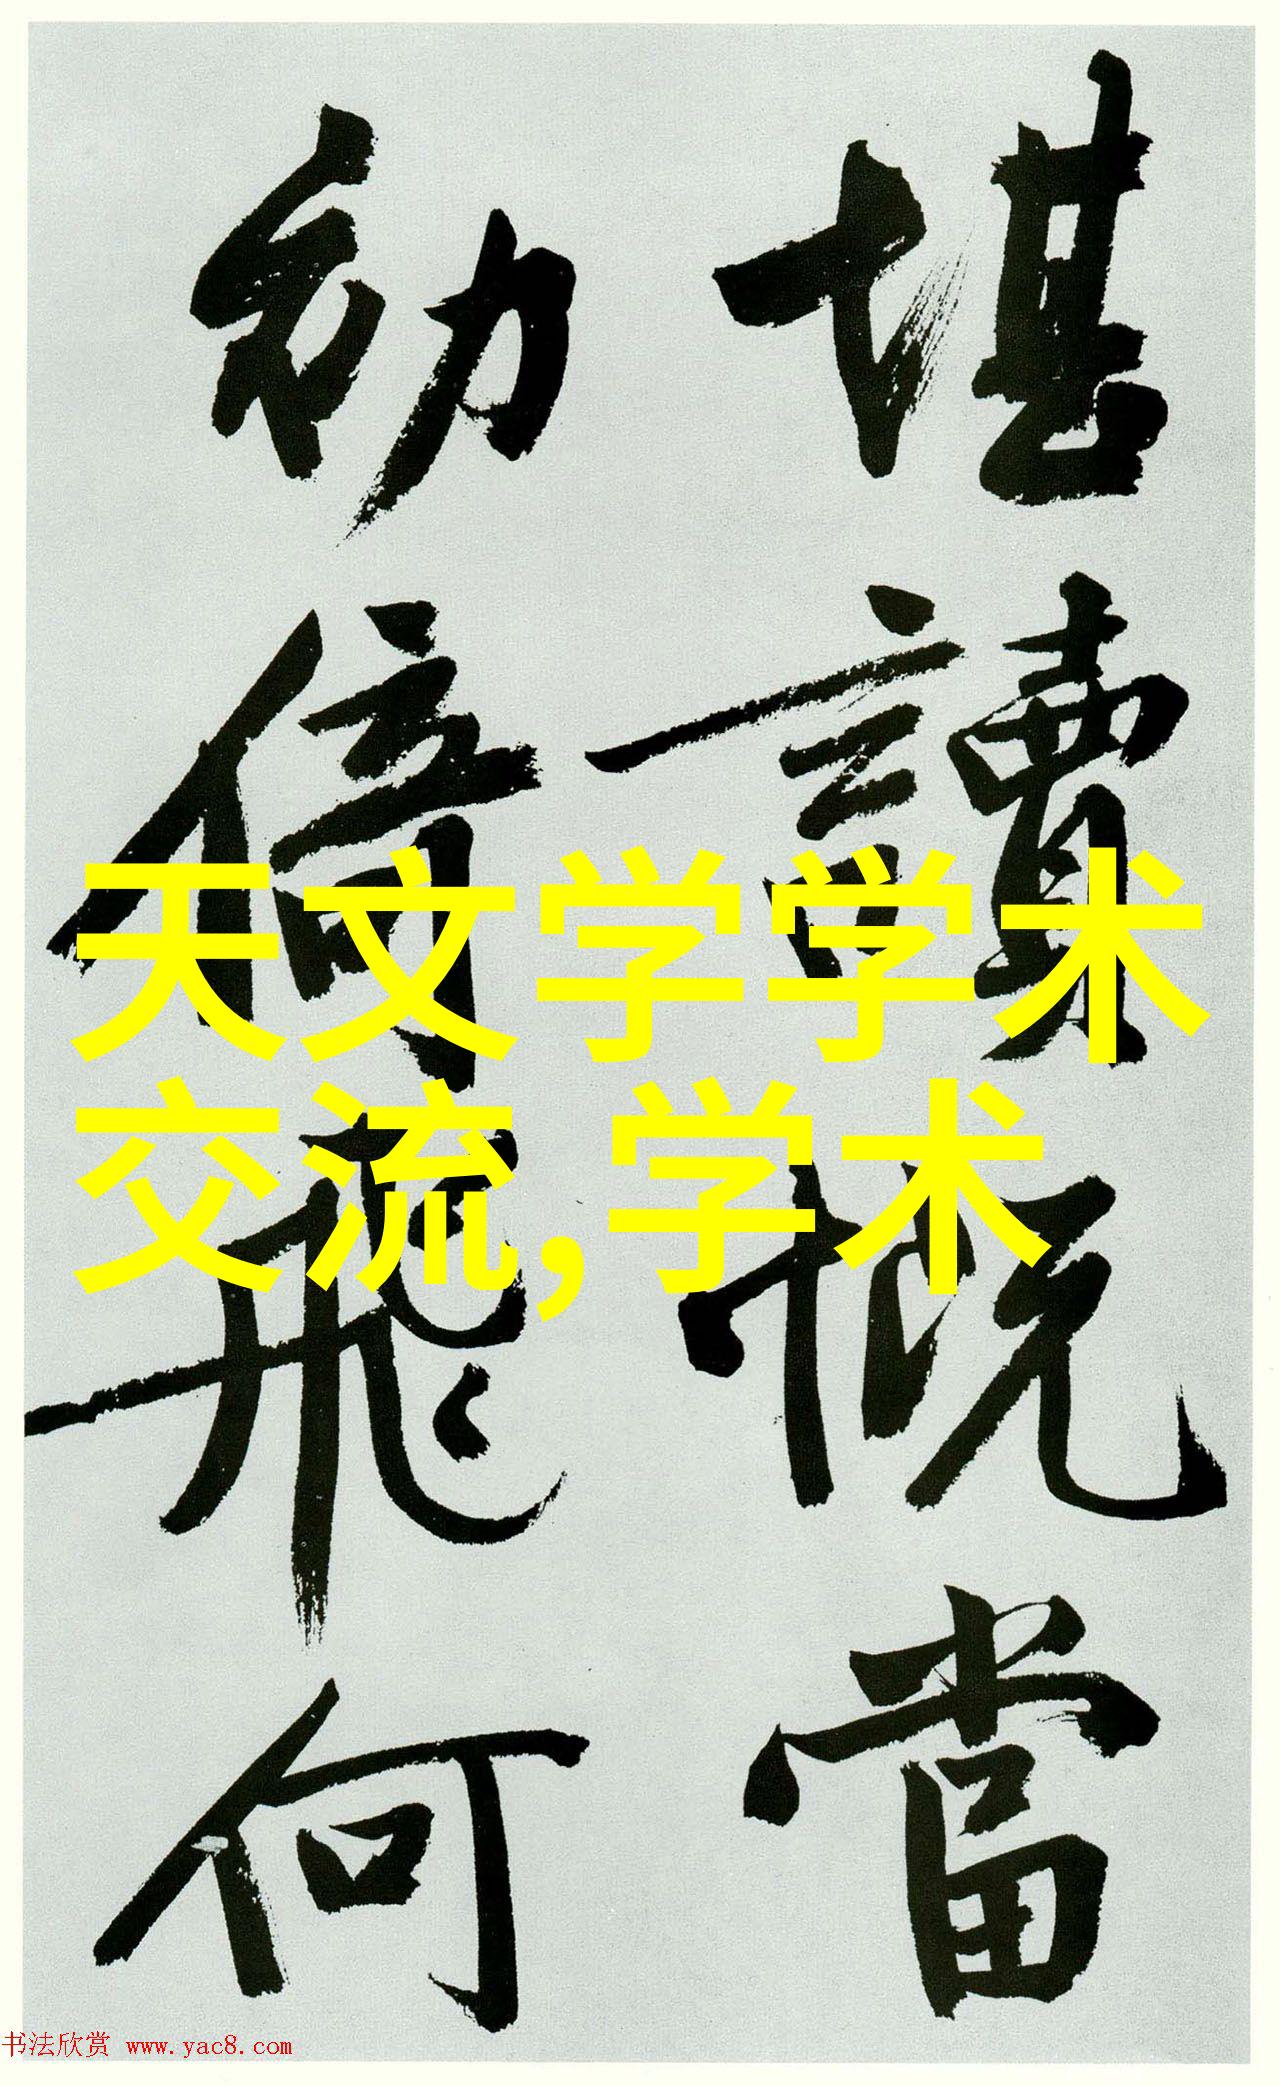 堪讀慨當
初倍飛何
天文学学术
交流,学术
书法欣赏 www.yac8.com